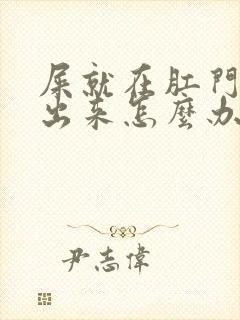 屎就在肛門
出来怎麼办
尹志偉